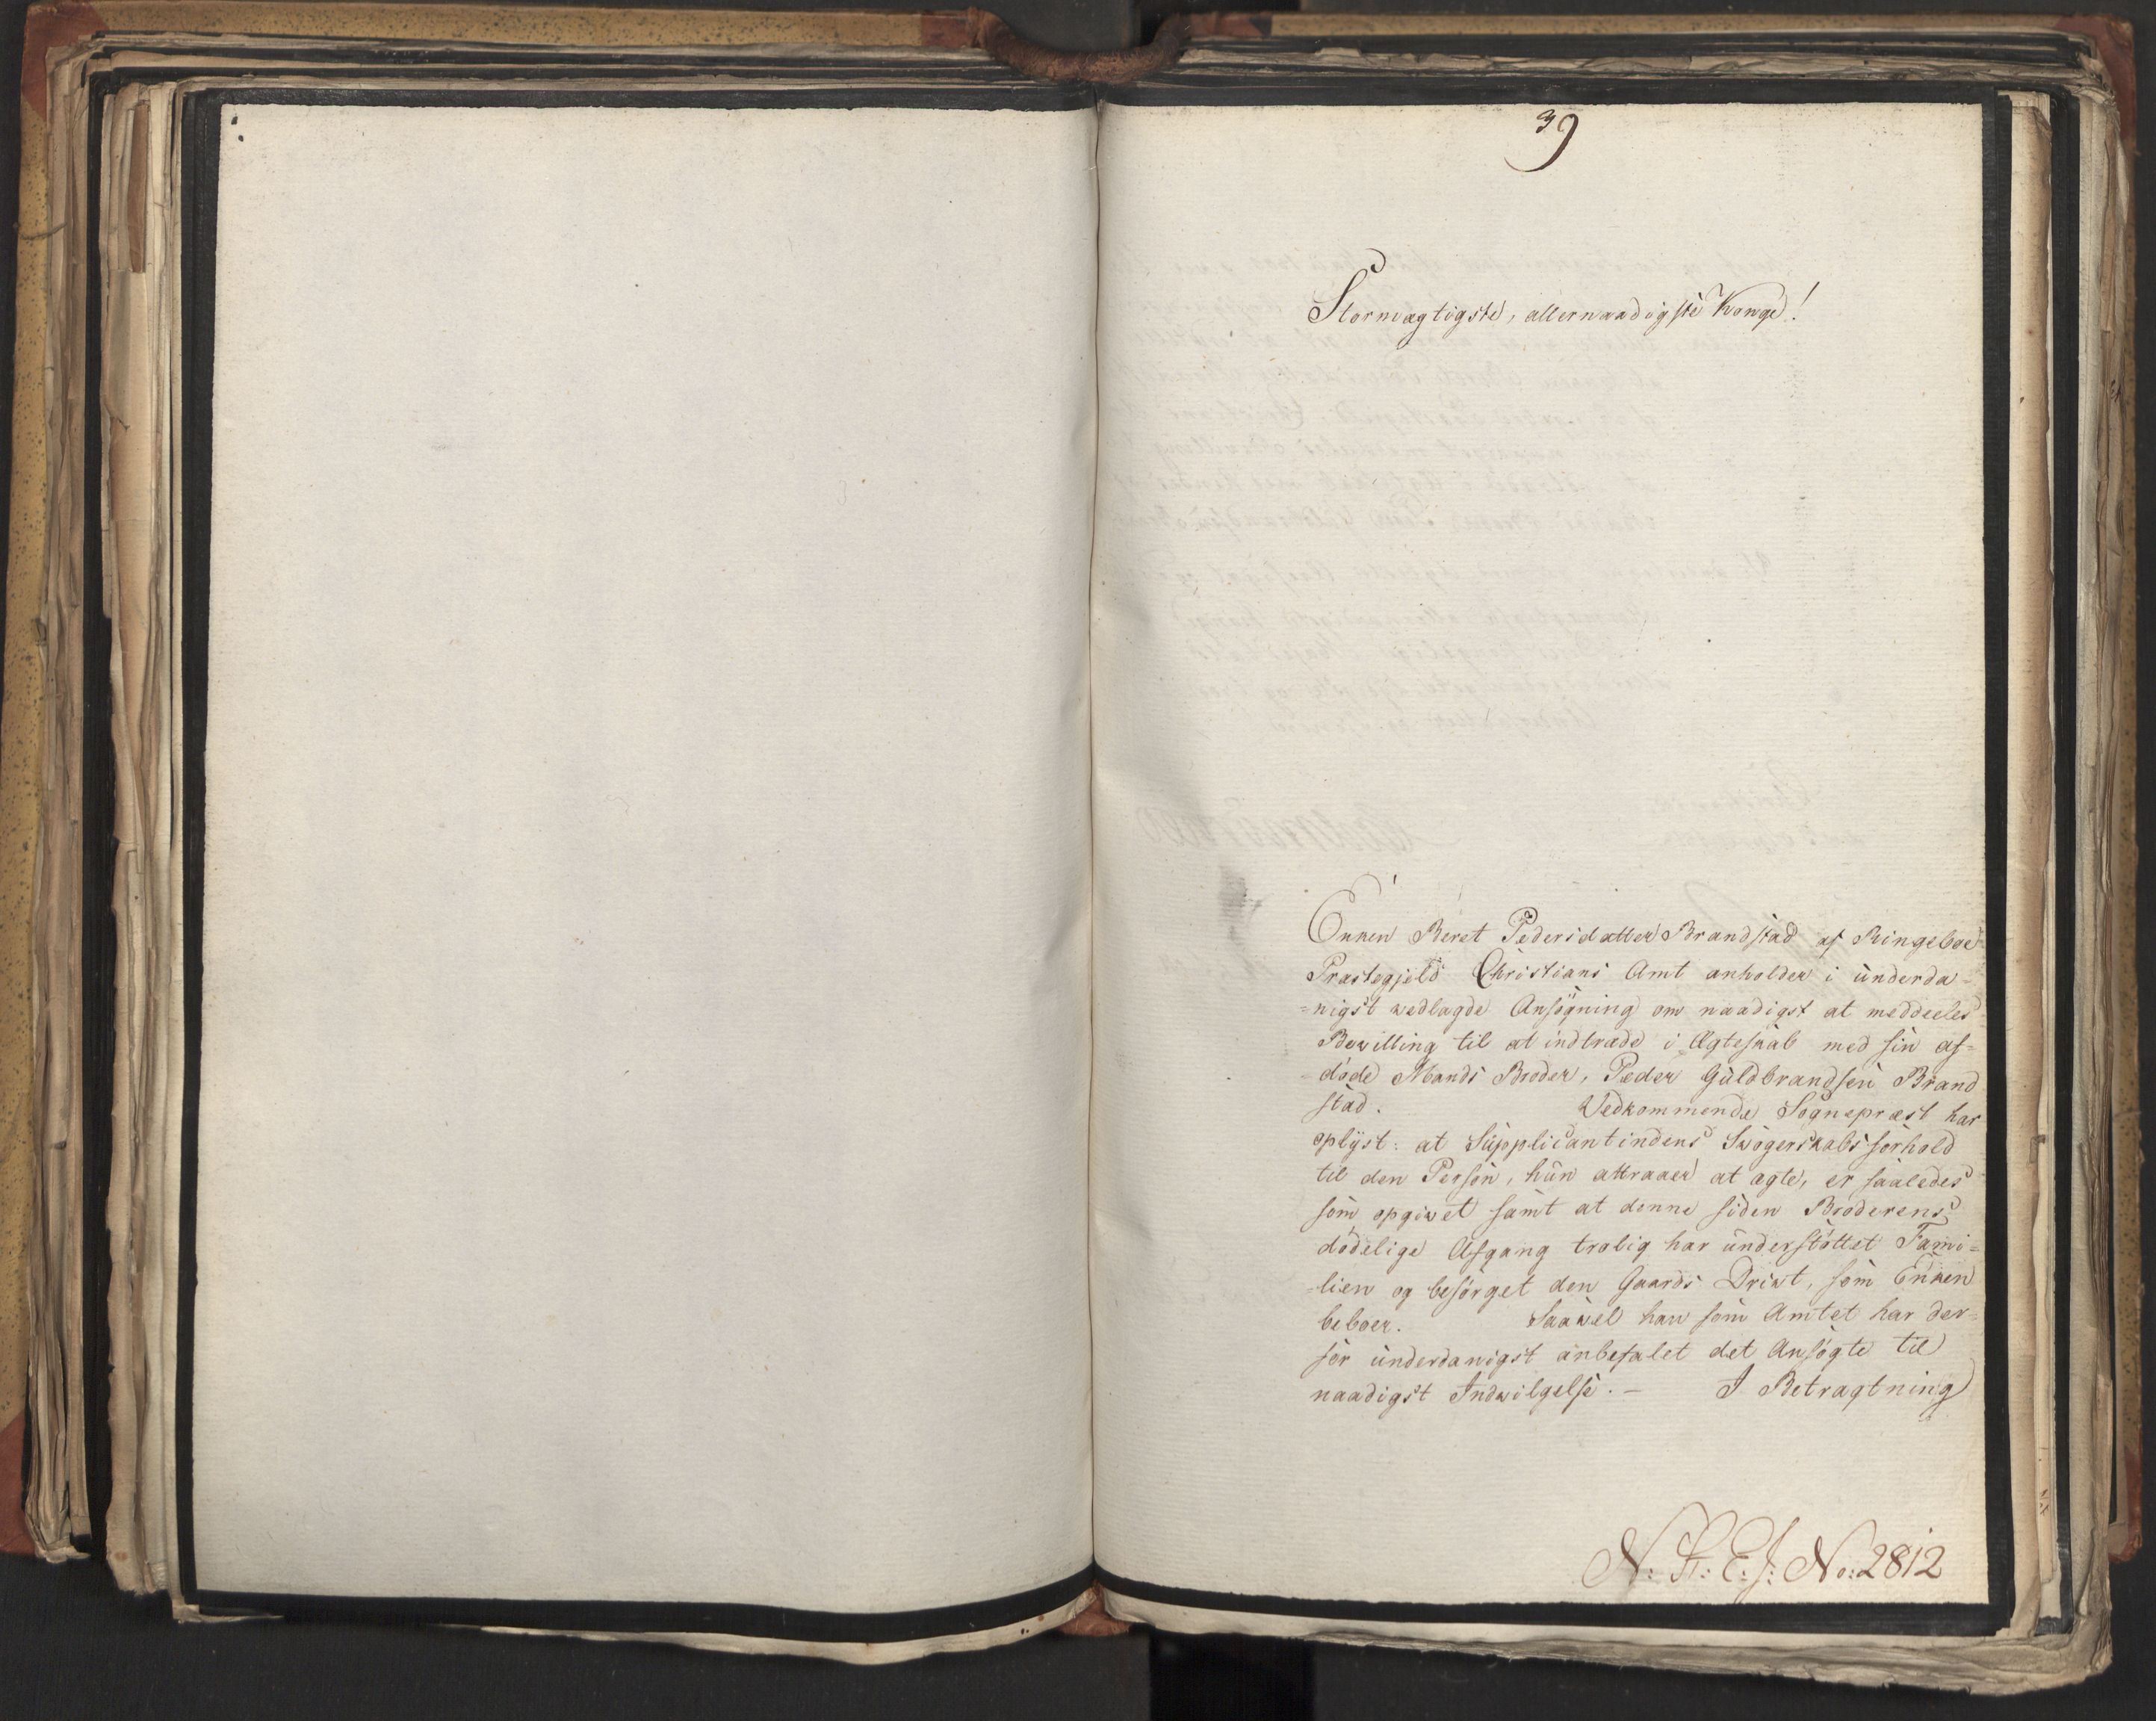 39
Stormægtigste, allernaadigste Konge!
Enken Beret Pedersdatter Brandstad af Ringeboe
Præstegjeld Christians Amt anholder i underda-
=nigst vedlagde Ansøgning om naadigst at meddeeles
Bevilling til at indtræde i Ægteskab med sin af=
døde Mands Broder, Peder Guldbrandsen Brand
stad. Vedkommende Sognepræst har
oplyst: at Supplicantindens Svogerskabsforhold
til den Person, hun attraaer at ægte, er saaledes
som opgivet samt at denne siden Broderens
dødelige Afgang trolig har understøttet Fami=
=lien og besørget den Gaards Drivt, som Enken
beboer. Saavel han som Amtet har der=
for underdanigst anbefalet det Ansøgte til
naadigst Indvilgelse. — I Betragtning
N: St: E: J: No: 2812